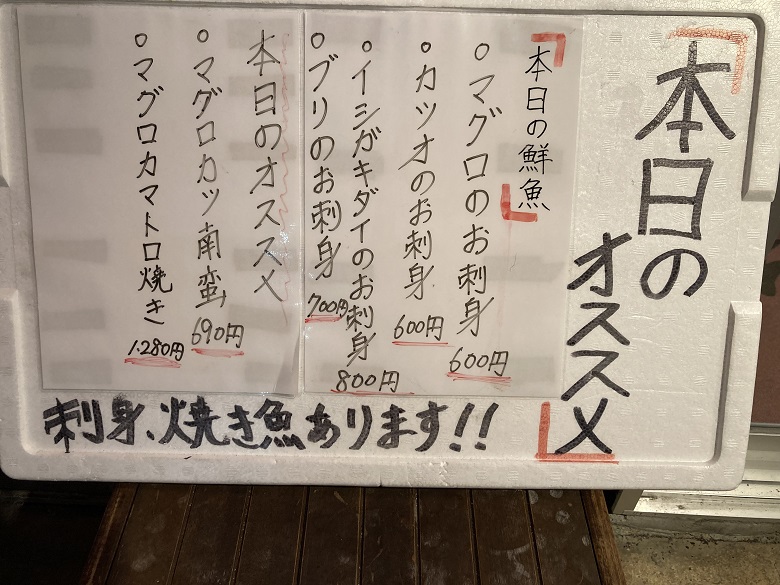 本日の
オススメ
本日の鮮魚
○マグロのお刺身 600円
○カツオのお刺身 600円
○イシガキダイのお刺身 800円
○ブリのお刺身 700円
本日のオススメ
○マグロカツ南蛮 690円
○マグロカマトロ焼き 1.280円
刺身、焼き魚あります!!